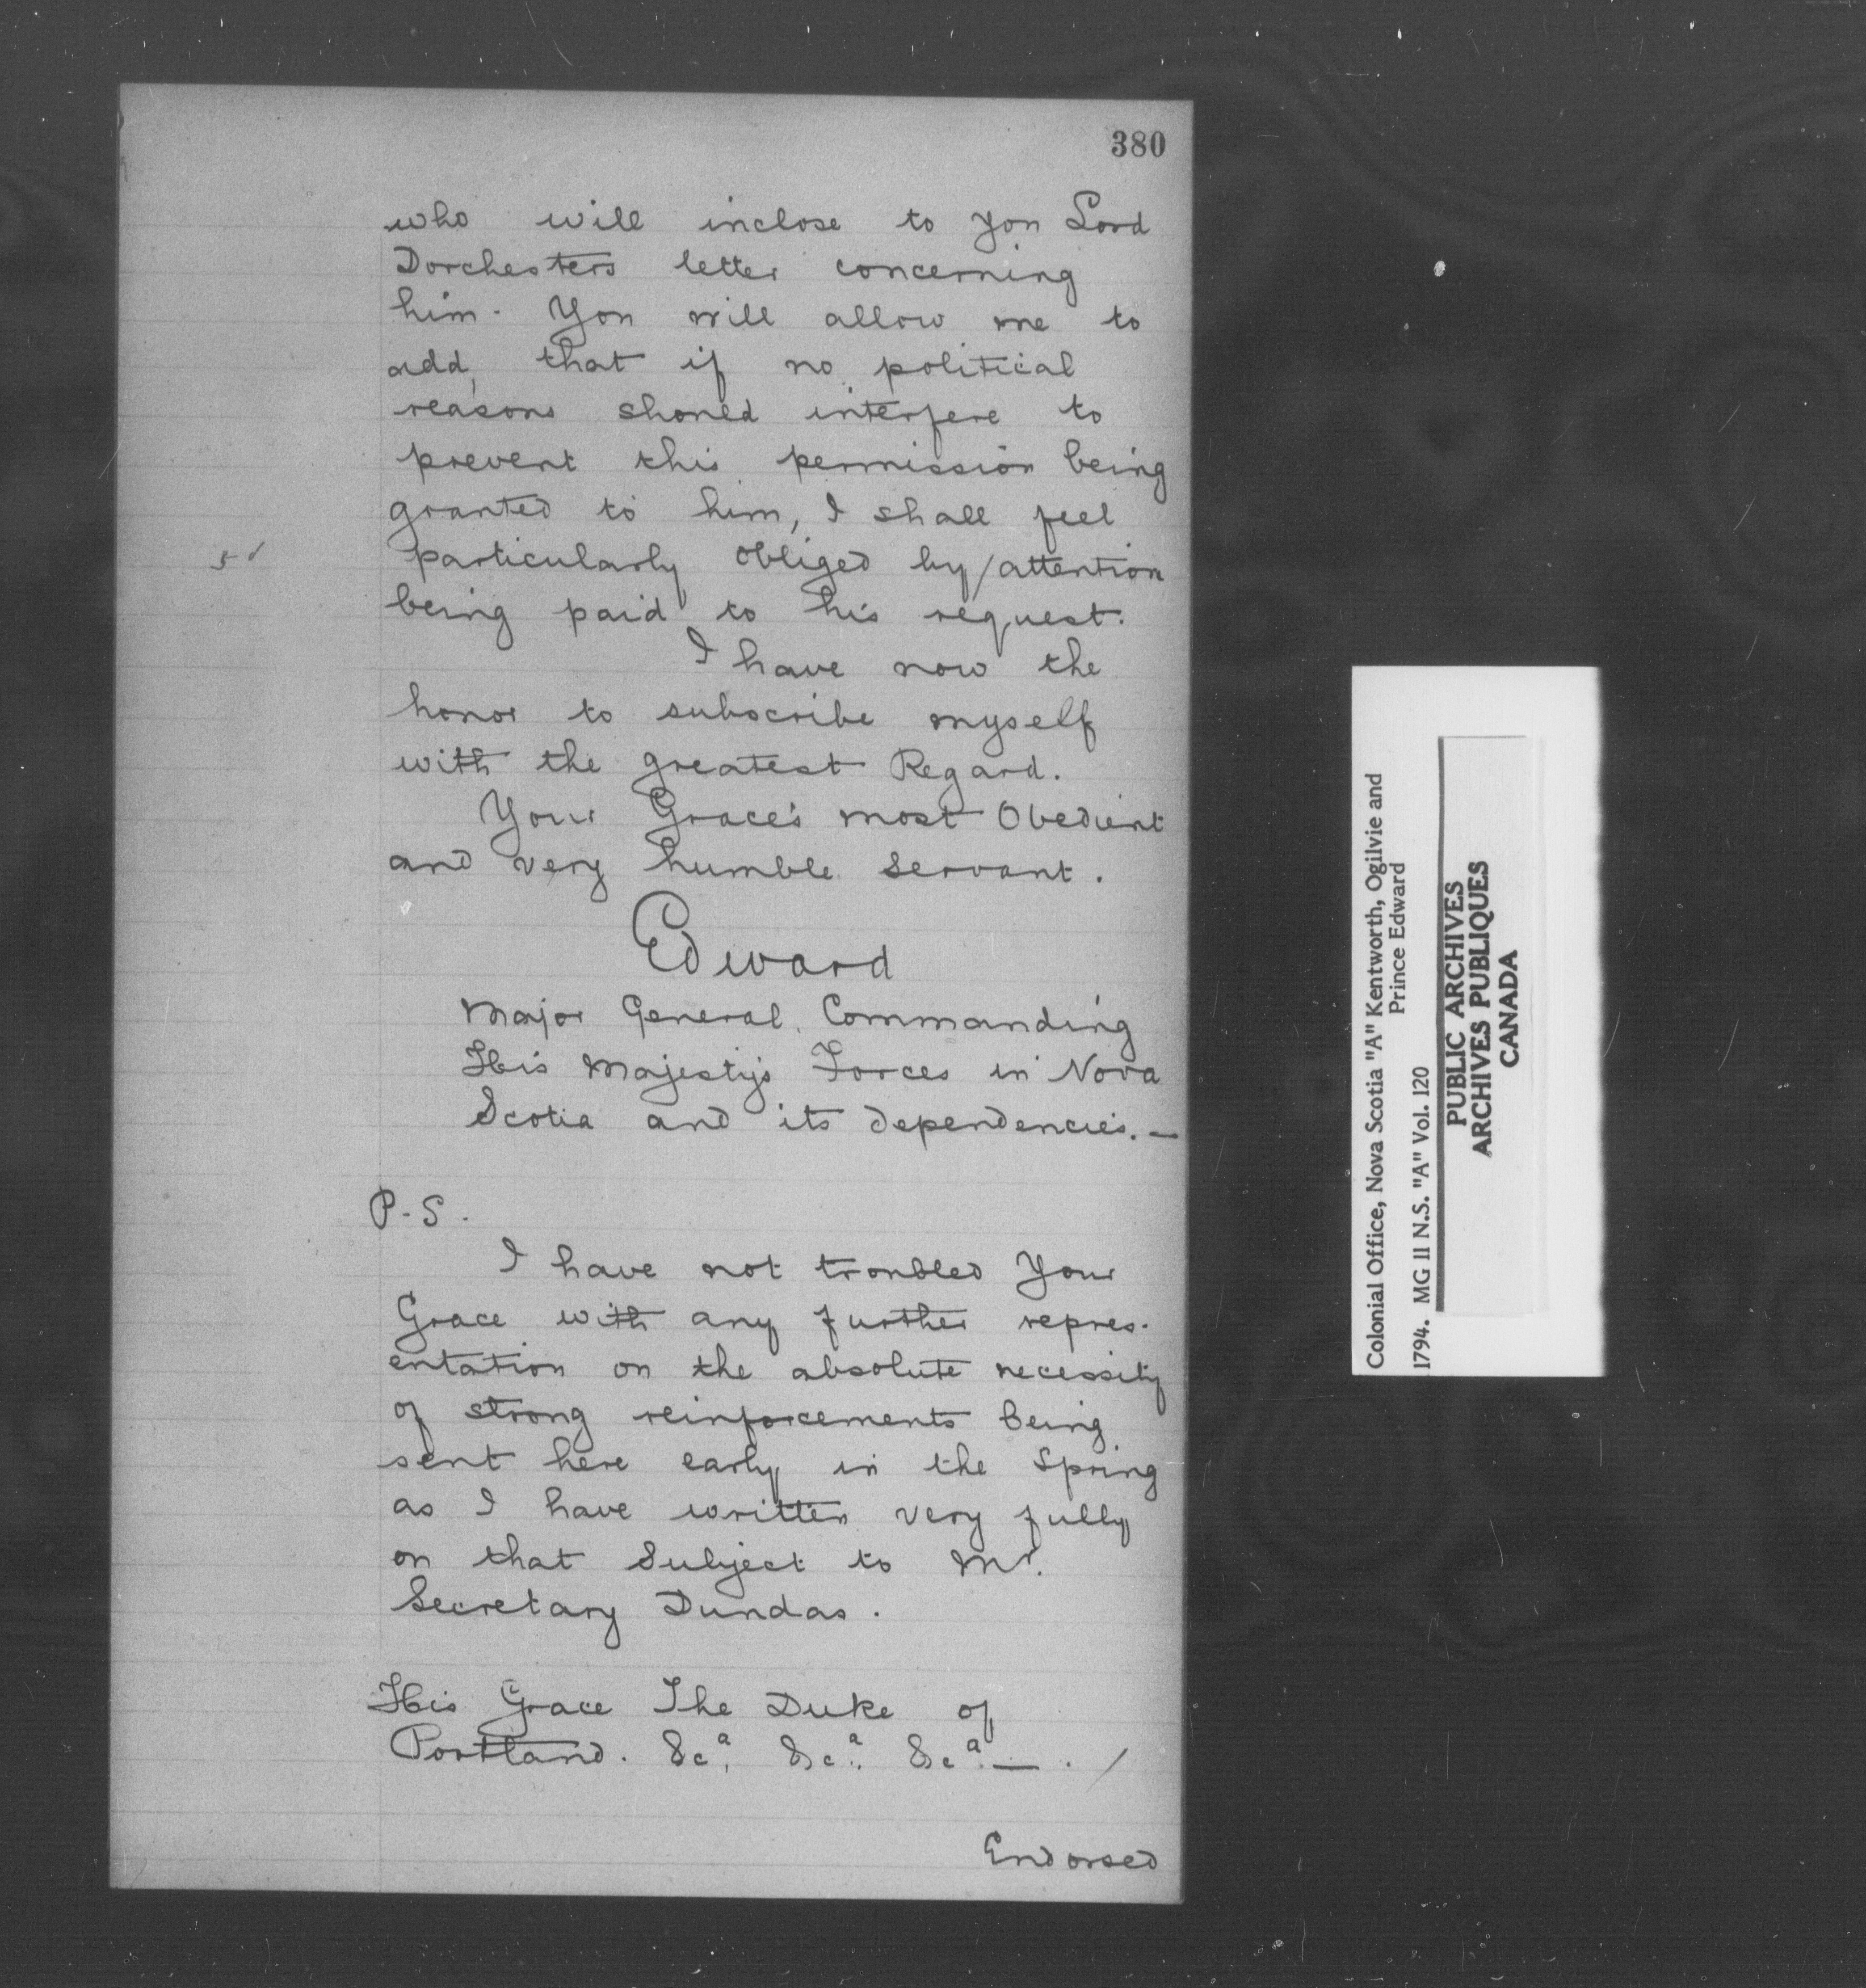 380
who will inclose to you Lord
Dorchesters letter concerning
him. You will allow me to
add, that if no political
reasons should interfere to
prevent this permission being
granted to him, I shall feel
particularly obliged by / attention
being paid to his request.
I have now the
honor to subscribe myself
with the greatest Regard.
Your Grace's most Obedient
and very humble servant.
Edward
Major General Commanding
His Majesty's Forces in Nova
Scotia and its dependencies. —
P.S.
I have not troubled Your
Grace with any further repres-
entation on the absolute necessity
of strong reinforcements being
sent here early in the Spring
as I have written very fully
on that Subject to Mr.
Secretary Dundas.
His Grace The Duke of
Portland. &ca. &ca. &ca. — . /
Endorsed
Colonial Office, Nova Scotia "A" Kentworth, Ogilvie and
Prince Edward
1794. MG 11 N.S. "A" Vol. 120
PUBLIC ARCHIVES
ARCHIVES PUBLIQUES
CANADA